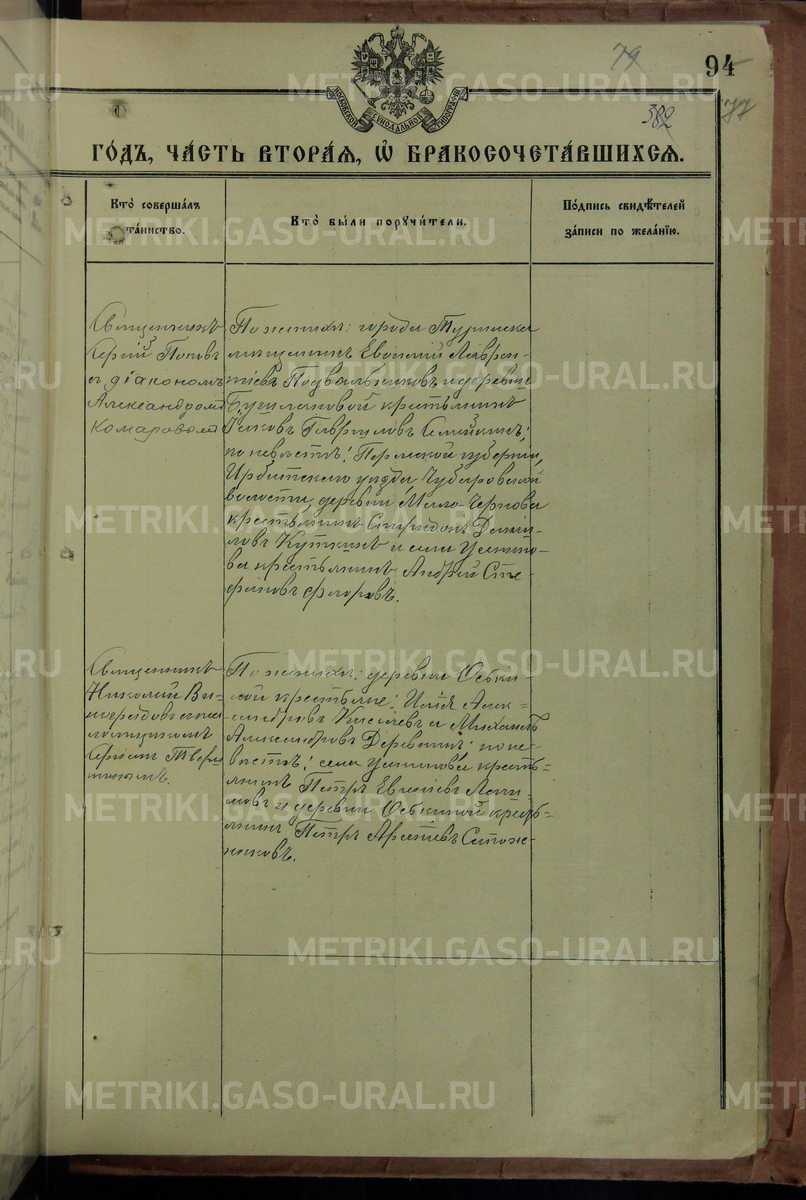 79
94
382
77
МОСКОВСКОЙ СѴНОДАЛЬНОЙ ТИПОГРАФІИ
ГО́ДЪ, ЧА́СТЬ ВТОРА́Я, Ѡ҆ БРАКОСОЧЕТА́ВШИХСЯ.
Кто̀ соверша́лъ
та́инство.
Кто̀ бы́ли поручи́тели.
По́дпись свидѣ́телей
за́писи по жела́нїю.
Священникъ
Сергій Поповъ
с діакономъ
Александромъ
Комаровымъ
По женихѣ: города Туринска
мещанинъ Евгеній Лаврен-
тіевъ Подвальниковъ и деревни
крестьянинъ
Яковъ Гавриловъ
по невѣстѣ: Пермской губерніи,
Ирбитскаго уѣзда, Чубаровской
волости, деревни Мало-Чернова
крестьянинъ Спиридонъ Дани-
ловъ Куткинъ и села Усенино-
ва крестьянинъ Андрей Сте-
фановъ Флоровъ.
Священникъ
Николай Ви-
ноградовъ с пса-
ломщикомъ
Сергіем Твери-
тинымъ.
По женихѣ: деревни Оськи-
ной крестьяне: Илья Алек-
сандровъ Киселевъ и Михаилъ
Александровъ Деревнинъ; по не-
вѣстѣ: села Усенинова кресть-
янинъ Петръ
и деревни Оськиной кресть-
янинъ Петръ Арсеніевъ Сапож-
никовъ.
METRIKI.GASO-URAL.RU